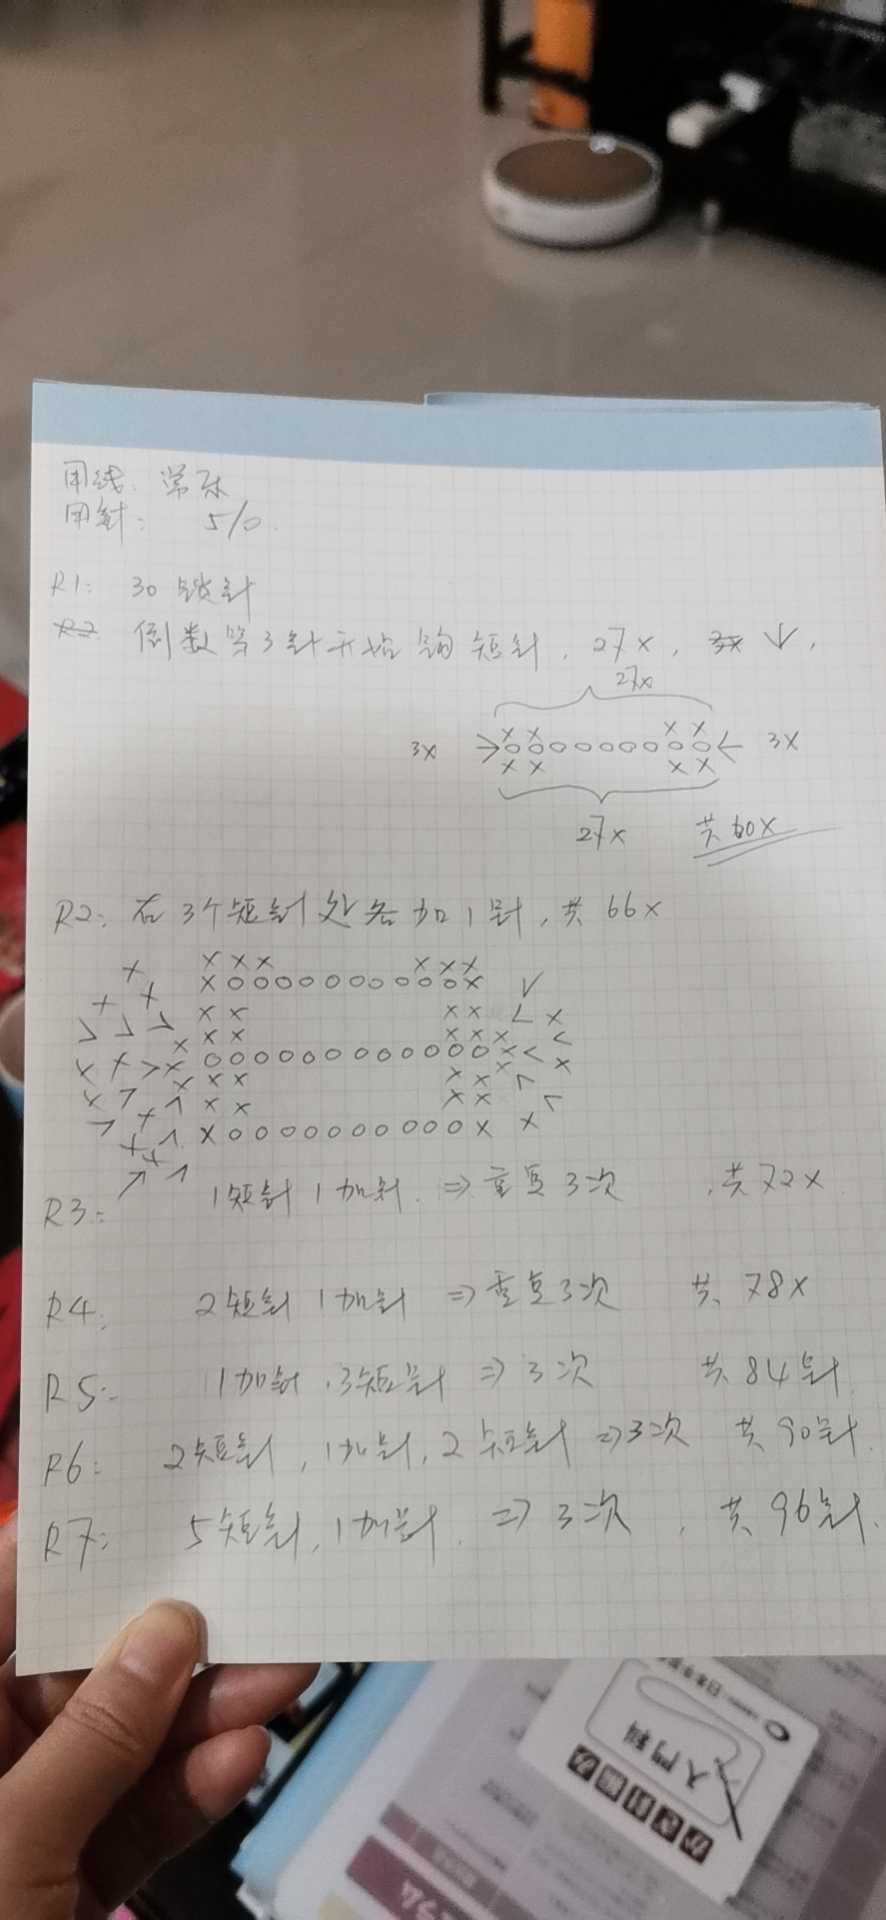 用线: 常乐
用针: 5/0.
R1: 30 锁针
R2 倒数第3针开始钩短针, 27x, 3x V,
27x
3x
3x
27x 共60x
R2: 在3个短针处各加1针, 共66x
R3: 1短针1加针 ⇒ 重复3次, 共72x
R4: 2短针1加针 ⇒ 重复3次 共78x
R5: 1加针.3短针 ⇒ 3次 共84针
R6: 2短针, 1加针, 2短针 ⇒ 3次 共90针.
R7: 5短针, 1加针. ⇒ 3次, 共96针.
入門科